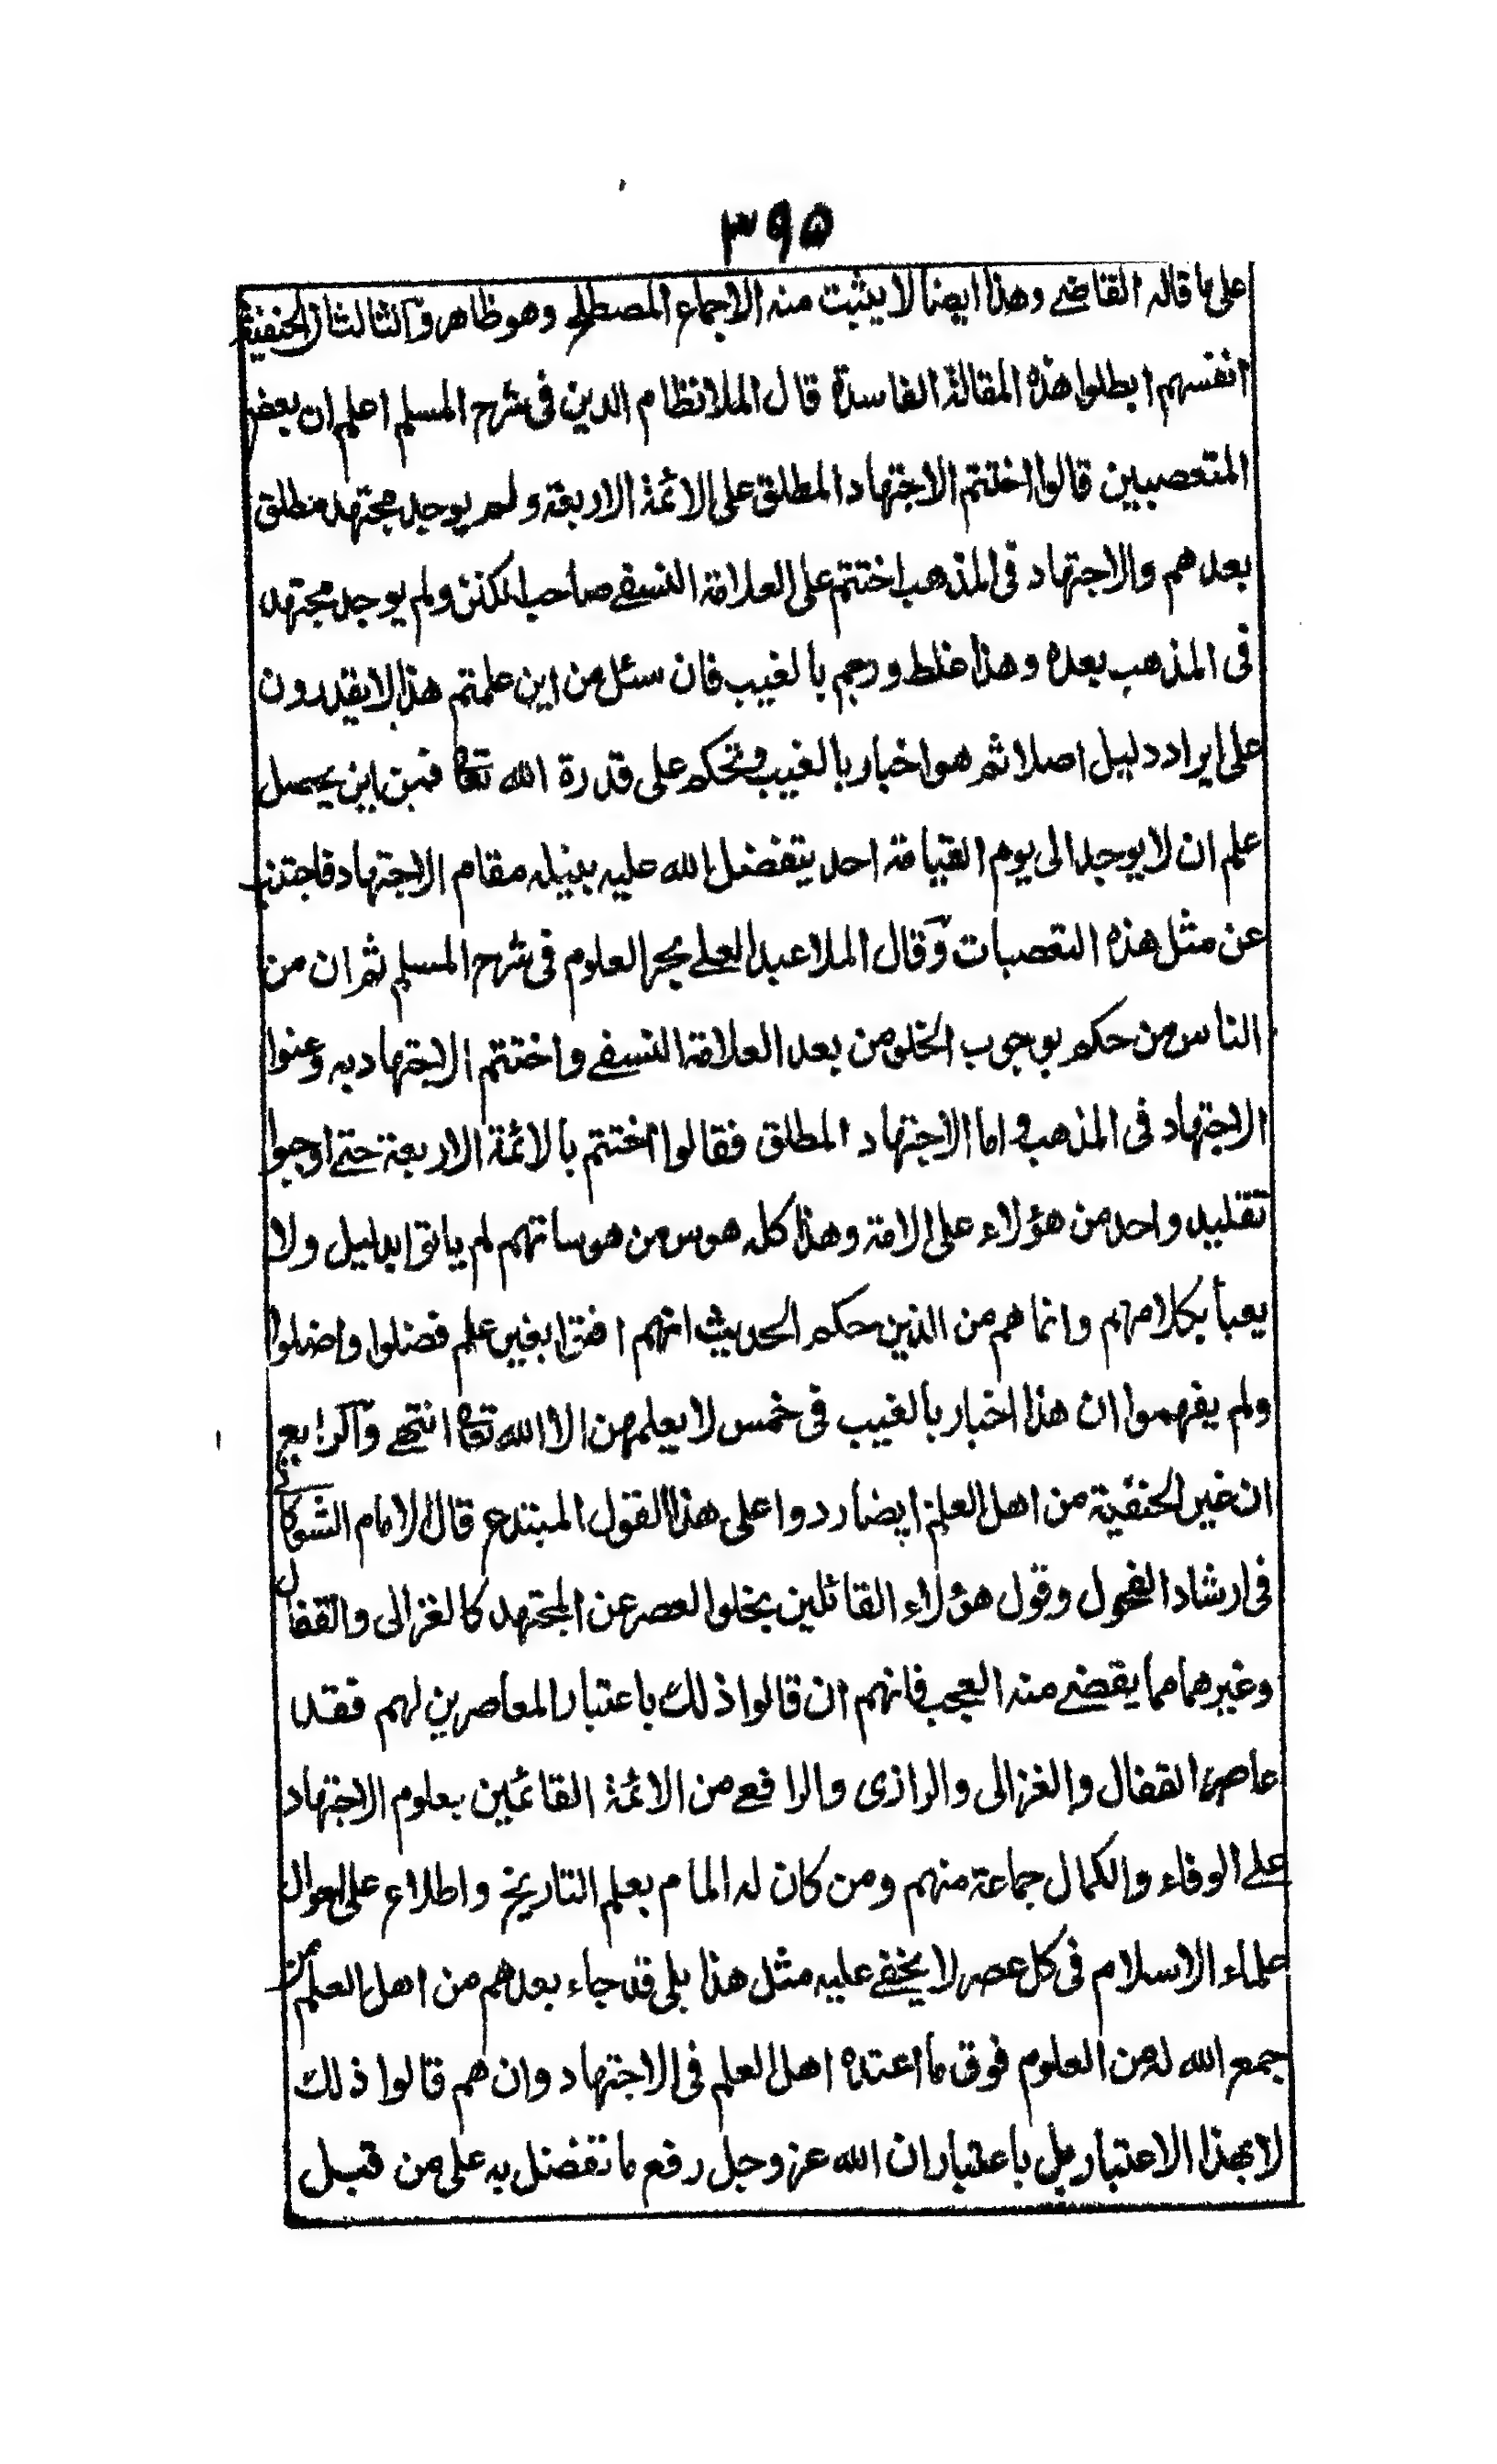 ٣٩٥
على ما قاله القاضے وهذا ايضا لا يثبت منه الاجماع المصطلح وهو ظاهر وآلثالث ان الحنفية
انفسهم ابطلوا هذه المقالة الفاسدة قال الملا نظام الدين فى شرح المسلم اعلم ان بعض
المتعصبين قالوا اختتم الاجتهاد المطلق على الائمة الاربعة ولم يوجد مجتهد مطلق
بعدهم والاجتهاد فى المذهب اختتم على العلامة النسفے صاحب الكنز ولم يوجد مجتهد
فى المذهب بعده وهذا غلط ورجم بالغيب فان سئل من اين علمتم هذا لا يقدرون
على ايراد دليل اصلا ثم هو اخبار بالغيب وتحكم على قدرة الله تعا فمن اين يحصل
علم ان لا يوجد الى يوم القيامة احد يتفضل الله عليه بنيله مقام الاجتهاد فاجتنب
عن مثل هذه التعصبات وَقال الملا عبد العلے بحر العلوم فى شرح المسلم ثم ان من
الناس من حكم بوجوب الخلو من بعد العلامة النسفے واختتم الاجتهاد به وعنوا
الاجتهاد فى المذهب واما الاجتهاد المطلق فقالوا اختتم بالائمة الاربعة حتے اوجبوا
تقليد واحد من هؤلاء على الامة وهذا كله هوس من هوساتهم لم ياتوا بدليل ولا
يعبأ بكلامهم وانما هم من الذين حكم الحديث انهم افتوا بغير علم فضلوا واضلوا
ولم يفهموا ان هذا اخبار بالغيب فى خمس لا يعلمهن الا الله تعا انتهے وآلرابع
ان غير الحنفية من اهل العلم ايضا ردوا على هذا القول المبتدع قال الامام الشوكانے
فى ارشاد الفحول وقول هؤلاء القائلين بخلو العصر عن المجتهد كالغزالى والقفال
وغيرهما مما يقضے منه العجب فانهم ان قالوا ذلك باعتبار المعاصرين لهم فقد
عاصر القفال والغزالى والرازى والرافعے من الائمة القائمين بعلوم الاجتهاد
علے الوفاء والكمال جماعة منهم ومن كان له المام بعلم التاريخ واطلاع على احوال
علماء الاسلام فى كل عصر لا يخفے عليه مثل هذا بلى قد جاء بعدهم من اهل العلم من
جمع الله له من العلوم فوق ما اعتده اهل العلم فى الاجتهاد وان هم قالوا ذلك
لا بهذا الاعتبار بل باعتبار ان الله عز وجل رفع ما تفضل به على من قبل